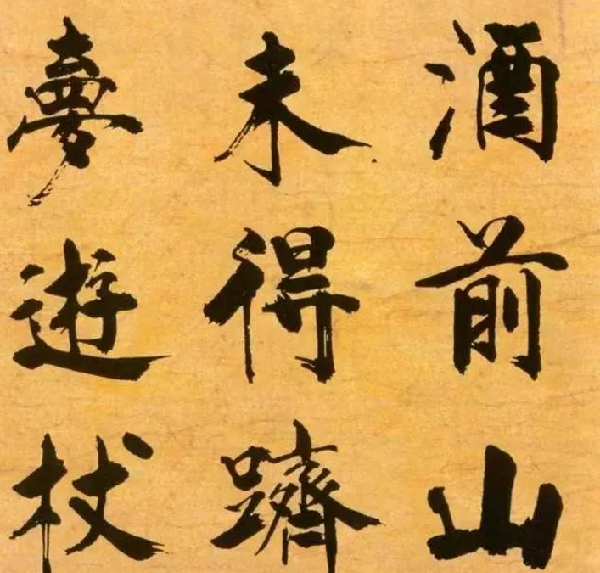 酒前山
未得躋
夢遊杖